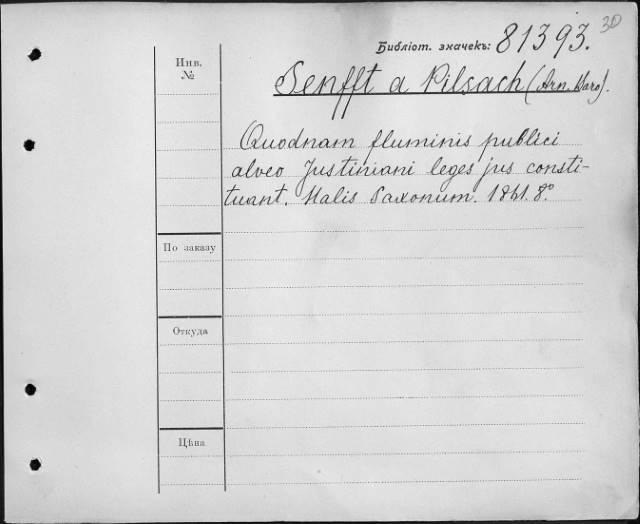 30
Библіот. значекъ: 81393.
Инв.
№
Senfft a Pilsach (Arn. Haro).
Quodnam fluminis publici
alveo Justiniani leges jus consti-
tuant. Halis Saxonum. 1861. 8º
По заказу
Откуда
Цѣна